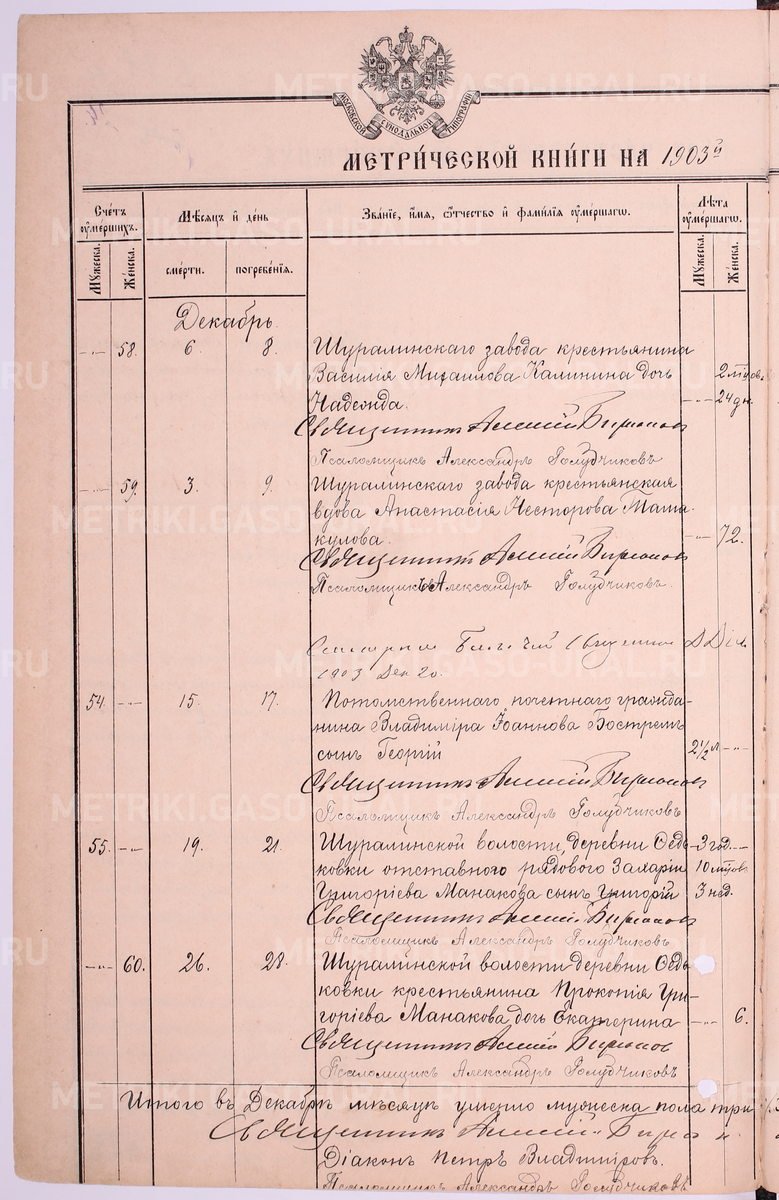 МОСКОВСКОЙ СИНОДАЛЬНОЙ ТИПОГРАФІИ
МЕТРИ́ЧЕСКОЙ КНИ́ГИ НА 1903й
Счетъ ᲂу҆мершихъ.
Мѣсяцъ и҆ де́нь
Зва́нїе, и҆́мя, ѻ҆́тчество и҆ фами́лїя ᲂу҆ме́ршагѡ.
Лѣта ᲂу҆ме́ршагѡ.
Мꙋжеска.
Же́нска.
сме́рти.
погребе́нїя.
Мꙋжеска.
Же́нска.
Декабрь.
-"- 58. 6. 8. Шуралинскаго завода крестьянина
Василія Михаилова Калинина дочь 2 мѣсяв.
Надежда. -"- 24 дн.
Священникъ Алексій
Псаломщикъ Александръ Голубчиковъ
-"- 59. 3. 9. Шуралинскаго завода крестьянская
вдова Анастасія Несторова Таша-
кулова. -"- 72.
Священникъ Алексій
Псаломщикъ Александръ Голубчиковъ.
1903 Дек 20.
54. -"- 15. 17. Потомственнаго почетнаго гражда-
нина Владиміра Іоаннова Бостремъ
сынъ Георгій 2½ л -"-
Священникъ Алексій
Псаломщикъ Александръ Голубчиковъ
55. -"- 19. 21. Шуралинской волости, деревни Ѳедь- 3 год. -"-
ковки отставного рядового Захаріи 10 мѣсяв
Григоріева Манакова сынъ Григорій 3 нед.
Священникъ Алексій
Псаломщикъ Александръ Голубчиковъ
-"- 60. 26. 28. Шуралинской волости деревни Ѳедь-
ковки крестьянина Прокопія Гри-
горіева Манакова дочь Екатерина -"- 6.
Священникъ Алексій
Псаломщикъ Александръ Голубчиковъ
Итого въ Декабрѣ мѣсяцѣ умерло мужеска пола три
Священникъ Алексій
Діаконъ Петръ Владиміровъ.
Псаломщикъ Александръ Голубчиковъ
METRIKI.GASO-URAL.RU